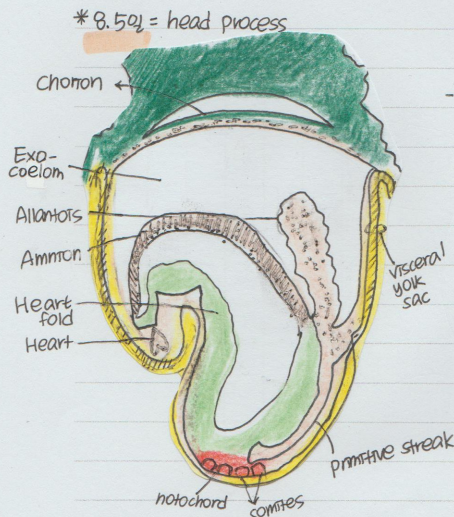 *8.5일 = head process
Chorion
Exo-
coelom
Allantois
Amnion
Heart
fold
Heart
visceral
yolk
sac
primitive streak
notochord
somites